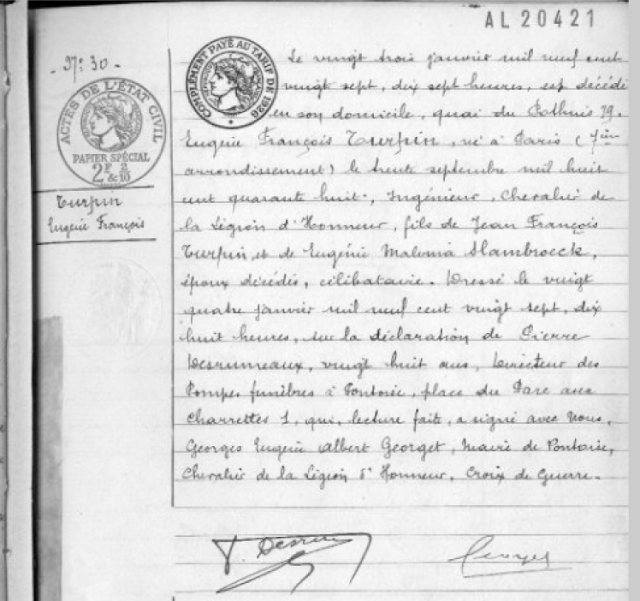 AL 20421
- N° 30 -
ACTES DE L'ÉTAT CIVIL
PAPIER SPÉCIAL
2F &
Turpin
Eugène François
COMPLÉMENT PAYÉ AU TARIF DE 1926
Le vingt trois janvier mil neuf cent
vingt sept, dix sept heures, est décédé
en son domicile, quai du Pothuis 79,
Eugène François Turpin, né à Paris (7ème
arrondissement) le trente septembre mil huit
cent quarante huit, Ingénieur, Chevalier de
la Légion d'Honneur, fils de Jean François
Turpin, et de Eugénie Slambroeck,
époux décédés, célibataire. Dressé le vingt
quatre janvier mil neuf cent vingt sept, dix
huit heures, sur la déclaration de Pierre
Desrumeaux, vingt huit ans, Directeur des
Pompes funèbres à Pontoise, place du Parc aux
Charrettes 1, qui, lecture faite, a signé avec Nous,
Georges Eugène Albert Georget, Maire de Pontoise,
Chevalier de la Légion d'Honneur, Croix de Guerre.